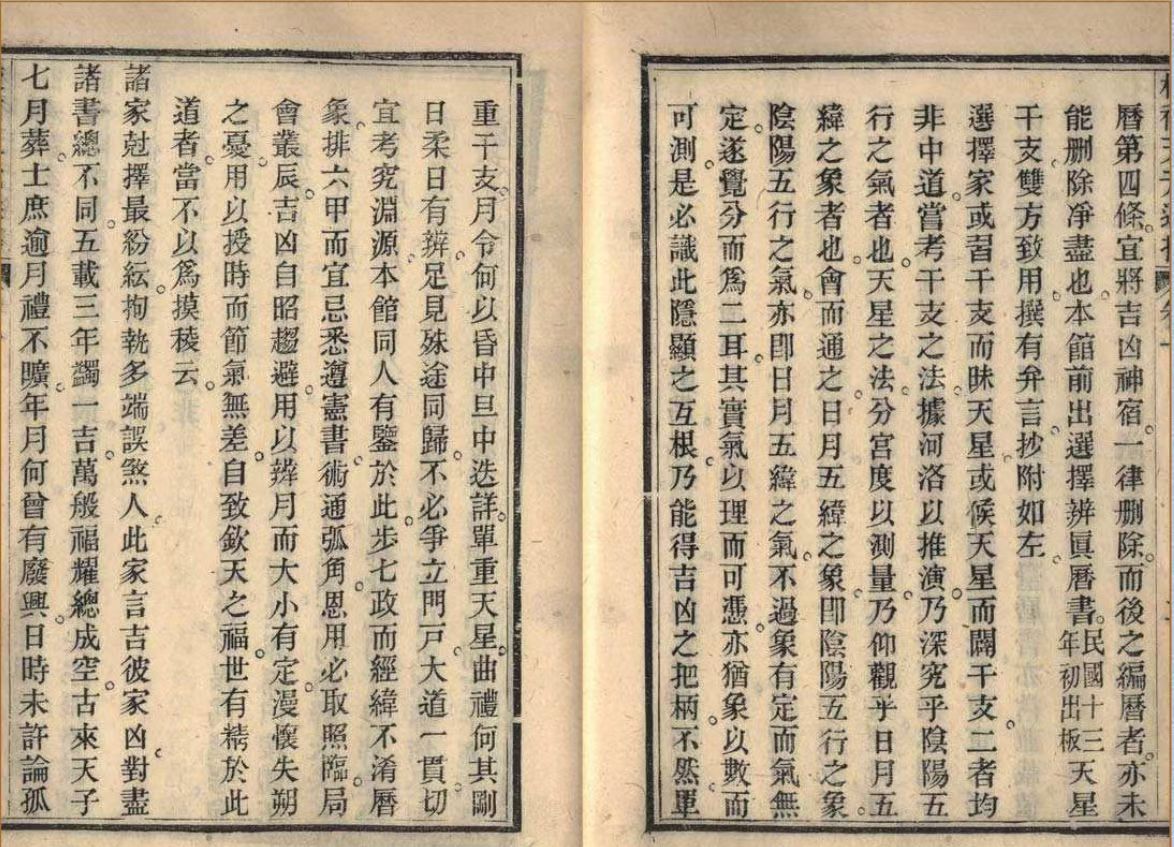 曆第四條宜將吉凶神宿一律删除而後之編曆者亦未
能删除凈盡也本館前出選擇辨眞曆書民國十三年初出版天星
干支雙方致用撰有弁言抄附如左
選擇家或習干支而昧天星或候天星而闢干支二者均
非中道嘗考干支之法據河洛以推演乃深究乎陰陽五
行之氣者也天星之法分宮度以測量乃仰觀乎日月五
緯之象者也會而通之日月五緯之象卽陰陽五行之象
陰陽五行之氣亦卽日月五緯之氣不過象有定而氣無
定遂覺分而爲二耳其實氣以理而可憑亦猶象以數而
可測是必識此隱顯之互根乃能得吉凶之把柄不然單
重干支月令何以昏中旦中迭詳單重天星曲禮何其剛
日柔日有辨足見殊途同歸不必爭立門戸大道一貫切
宜考究淵源本館同人有鑒於此步七政而經緯不淆曆
象排六甲而宜忌悉遵憲書術通弧角恩用必取照臨局
會叢辰吉凶自昭趨避用以辨月而大小有定漫懷失朔
之憂用以授時而節氣無差自致欽天之福世有精於此
道者當不以爲摸稜云
諸家尅擇最紛紜拘執多端誤煞人此家言吉彼家凶對盡
諸書總不同五載三年蠲一吉萬般福耀總成空古來天子
七月葬士庶逾月禮不曠年月何曾有廢興日時未許論孤